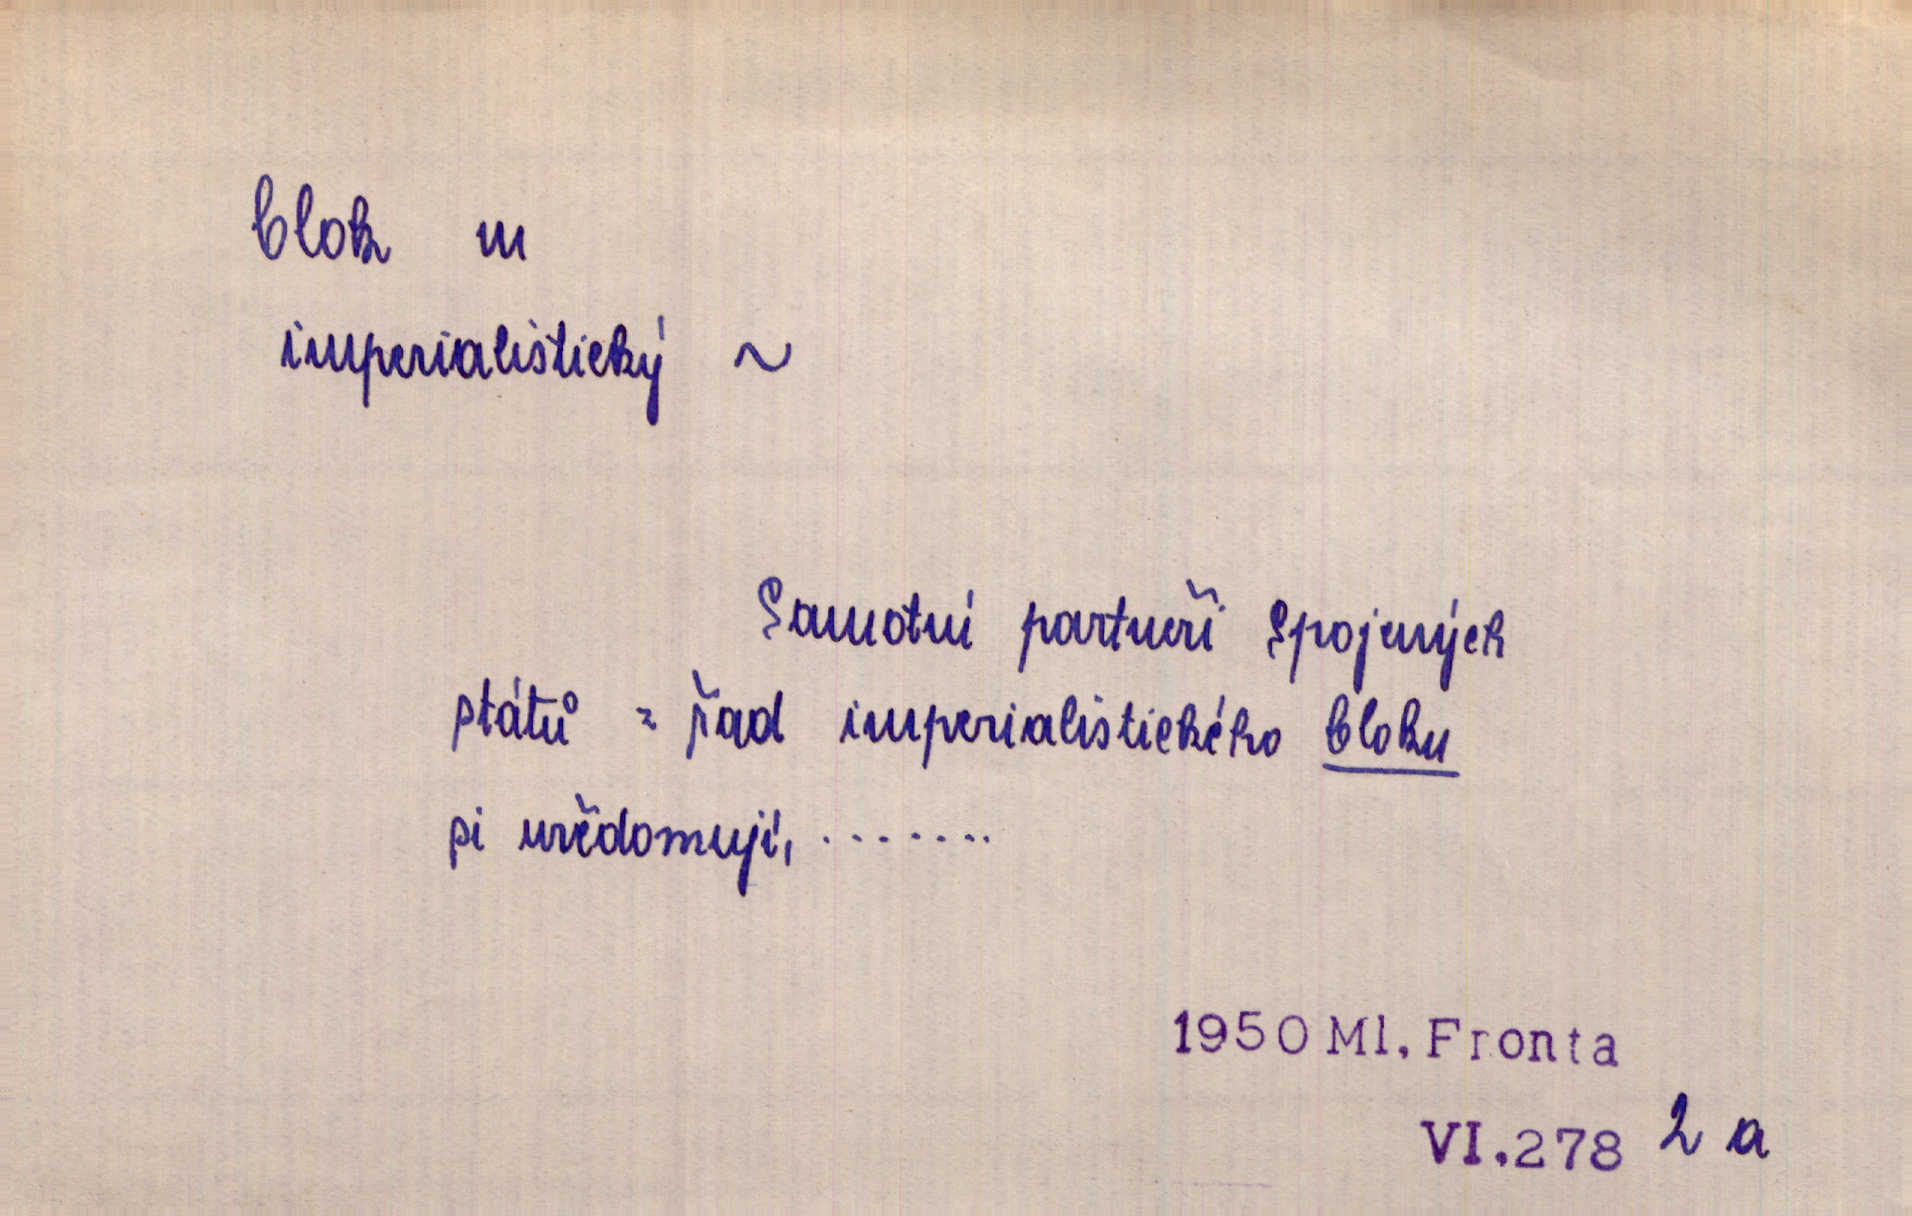 blok m
imperialistický ~
Samotní partneři Spojených
států z řad imperialistického bloku
si uvědomují, ........
1950 Ml. Fronta
VI.278 2 a